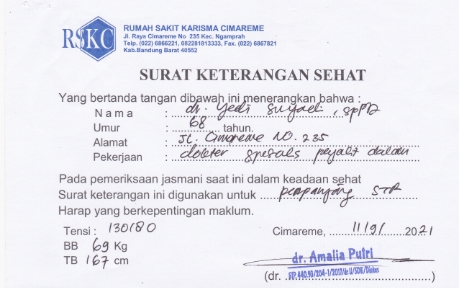 RSKC
RUMAH SAKIT KARISMA CIMAREME
Jl. Raya Cimareme No 235 Kec. Ngamprah
Telp. (022) 6866221, 082281813333, Fax. (022) 6867821
Kab.Bandung Barat 40552
SURAT KETERANGAN SEHAT
Yang bertanda tangan dibawah ini menerangkan bahwa :
Nama : dr. Yedi Suyadi, SpPD
Umur : 68 tahun.
Alamat : JL. Cimareme NO. 235
Pekerjaan : dokter spesials peyakit dalam
Pada pemeriksaan jasmani saat ini dalam keadaan sehat
Surat keterangan ini digunakan untuk : perpanjang STR
Harap yang berkepentingan maklum.
Tensi : 130/80
Cimareme, 11/9/ 2021
BB 69 Kg
TB 167 cm
dr. Amalia Putri
(dr.